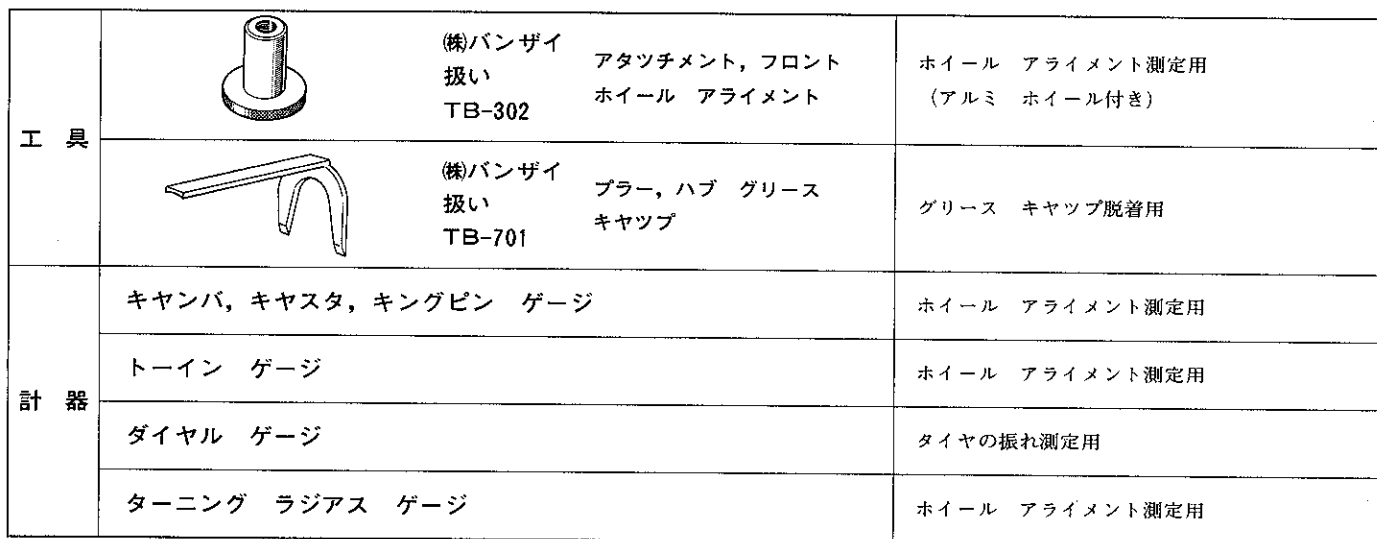 工 具
㈱バンザイ
扱い
TB-302
アタツチメント, フロント
ホイール アライメント
ホイール アライメント測定用
(アルミ ホイール付き)
㈱バンザイ
扱い
TB-701
プラー, ハブ グリース
キヤツプ
グリース キヤップ脱着用
計 器
キヤンバ, キヤスタ, キングピン ゲージ
ホイール アライメント測定用
トーイン ゲージ
ホイール アライメント測定用
ダイヤル ゲージ
タイヤの振れ測定用
ターニング ラジアス ゲージ
ホイール アライメント測定用